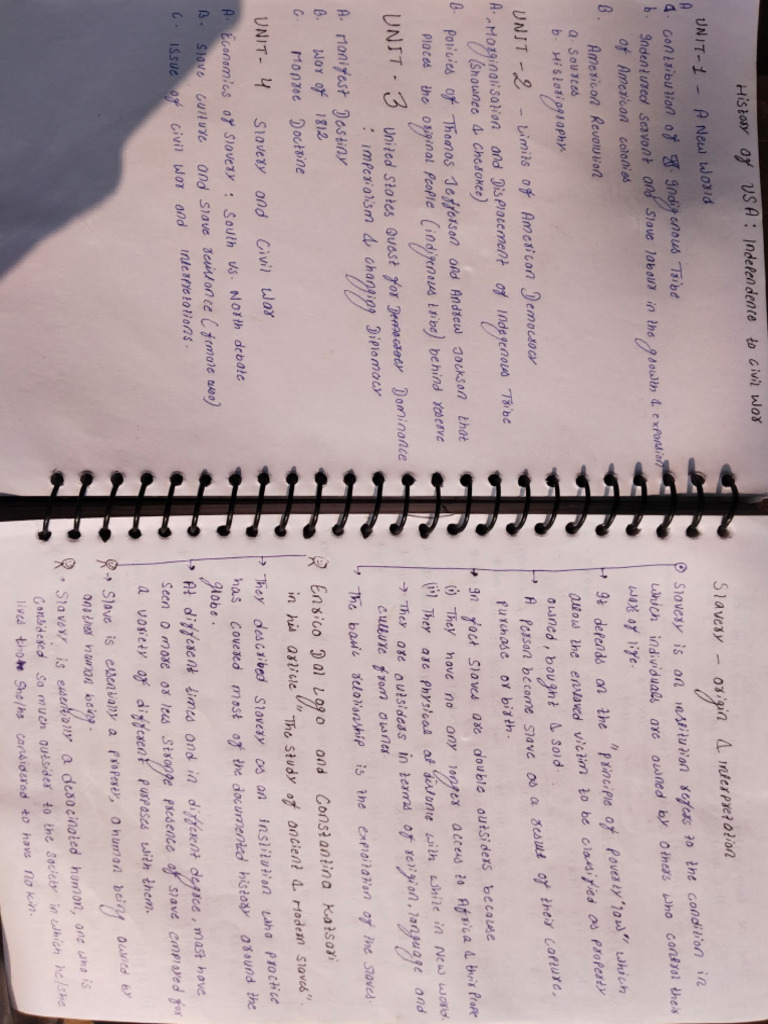 History of USA : Independence to civil war
A UNIT-1 - A New World
a. contribution of Indigenous Tribe
b. Indentured servant and slave labour in the growth & expansion
of American colonies
B. American Revolution
a. sources
b. Historiography
UNIT-2 - Limits of American Democracy
A. Marginalisation and Displacement of Indegenous Tribe
(Shawnee & Cherokee)
B. Policies of Thomas Jefferson and Andrew Jackson that
places the original People (indigenous tribe) behind reserve
UNIT-3 United States Quest for Dominance
: imperialism & changing Diplomacy
A. Manifest Destiny
B. War of 1812
C. Monroe Doctrine
UNIT-4 Slavery and Civil War
A. Economics of Slavery : South vs. North debate
B. Slave culture and slave resistance (female
C. Issue of civil war and interpretations.
Slavery - origin & interpretation
Slavery is an institution refers to the condition in
which individuals are owned by others who control their
way of life.
→ It depends on the "principle of Poverty "law" which
allow the enslaved victim to be classified as property
owned, bought & sold.
→ A person become slave as a result of their capture,
purchase or birth.
→ In fact Slaves are double outsiders because
(i) They have no any longer access to Africa & their
(ii) They are physical at with while in New world.
→ They are outsiders in terms of religion, language and
culture from owner
→ The basic relationship is the exploitation of the slaves.
Enrico Dal Lago and Constantina Katsari
in his article "The study of ancient & modern slaves".
→ They described Slavery as an institution who practice
has covered most of the documented history around the
globe.
→ At different times and in different degree, most have
seen a more or less strange presence of slave employed for
a variety of different purposes with them.
→ Slave is essentially a property, a human being owned by
another human being.
→ Slavery is essentially a deracinated human, one who is
considered so much outsider to the society in which he/she
lives that she/he considered to have no kin.